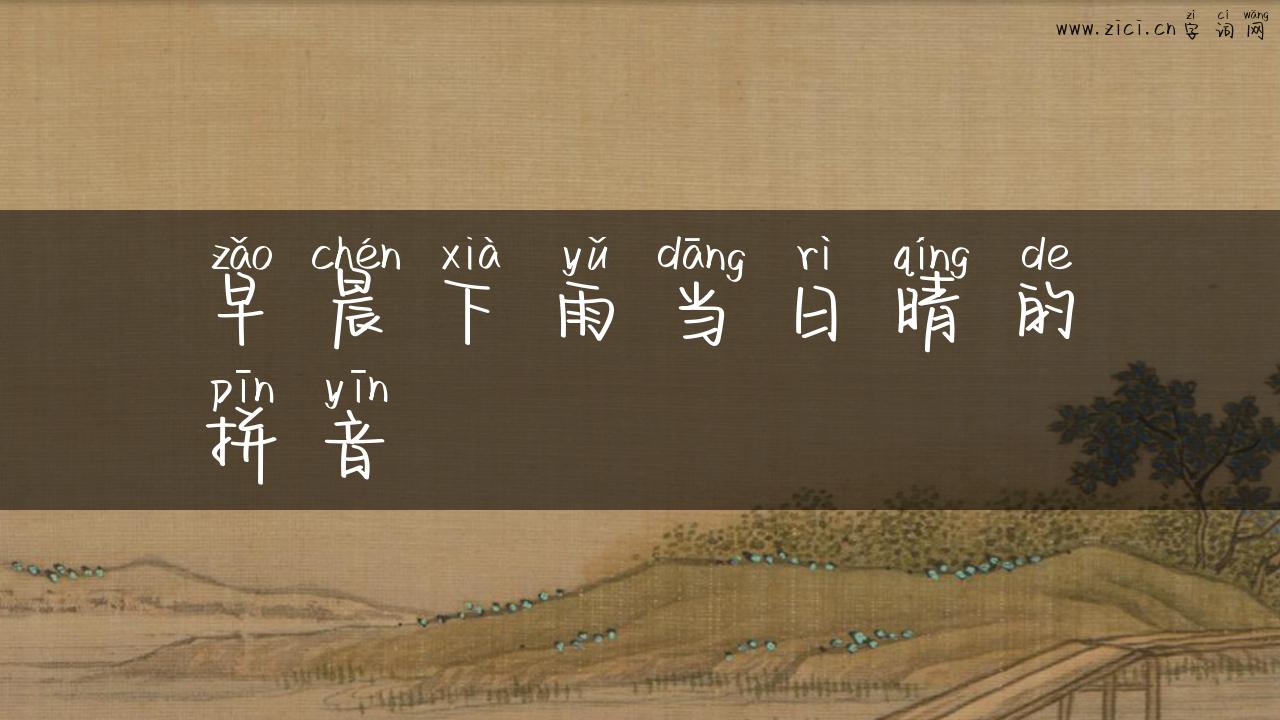 zì cí wǎng
www.zici.cn字词网
zǎo chén xià yǔ dāng rì qíng de
早晨下雨当日晴的
pīn yīn
拼音